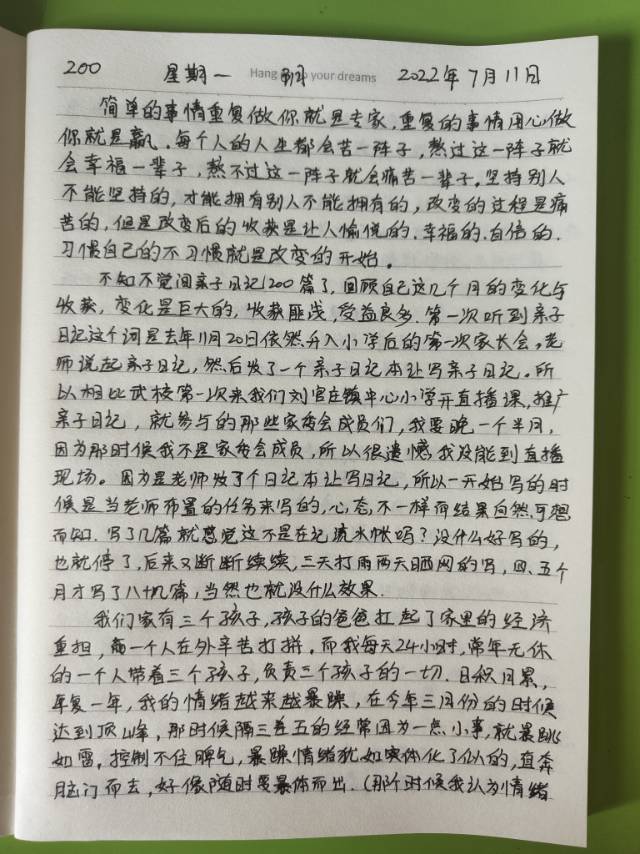 200 星期一 Hang your dreams 晴 2022年7月11日
简单的事情重复做你就是专家,重复的事情用心做
你就是赢。每个人的人生都会苦一阵子,熬过这一阵子就
会幸福一辈子,熬不过这一阵子就会痛苦一辈子。坚持别人
不能坚持的,才能拥有别人不能拥有的,改变的过程是痛
苦的,但是改变后的收获是让人愉悦的.幸福的.自信的.
习惯自己的不习惯就是改变的开始。
不知不觉间亲子日记200篇了,回顾自己这几个月的变化与
收获,变化是巨大的,收获匪浅,受益良多.第一次听到亲子
日记这个词是去年11月20日依然升入小学后的第一次家长会。老
师说起亲子日记,然后发了一个亲子日记本让写亲子日记。所
以相比武校第一次来我们刘官庄镇中心小学开直播课,推广
亲子日记,就参与的那些家委会成员们,我要晚一个半月,
因为那时候我不是家委会成员,所以很遗憾我没能到直播
现场。因为是老师发了个日记本让写日记,所以一开始写的时
候是当老师布置的任务来写的,心态不一样得结果自然可想
而知.写了几篇就感觉这不是在记流水帐吗?没什么好写的,
也就停了,后来又断断续续,三天打雨两天晒网的写,四、五个
月才写了八十九篇,当然也就没什么效果.
我们家有三个孩子,孩子的爸爸扛起了家里的经济
重担,一个人在外辛苦打拼.而我每天24小时,常年无休
的一个人带着三个孩子,负责三个孩子的一切.日积月累,
年复一年,我的情绪越来越暴躁,在今年三月份的时候
达到顶峰,那时候隔三差五的经常因为一点小事,就暴跳
如雷.控制不住脾气,暴躁情绪犹如实体化了似的,直奔
脑门而去,好像随时要暴体而出.(那个时候我认为情绪